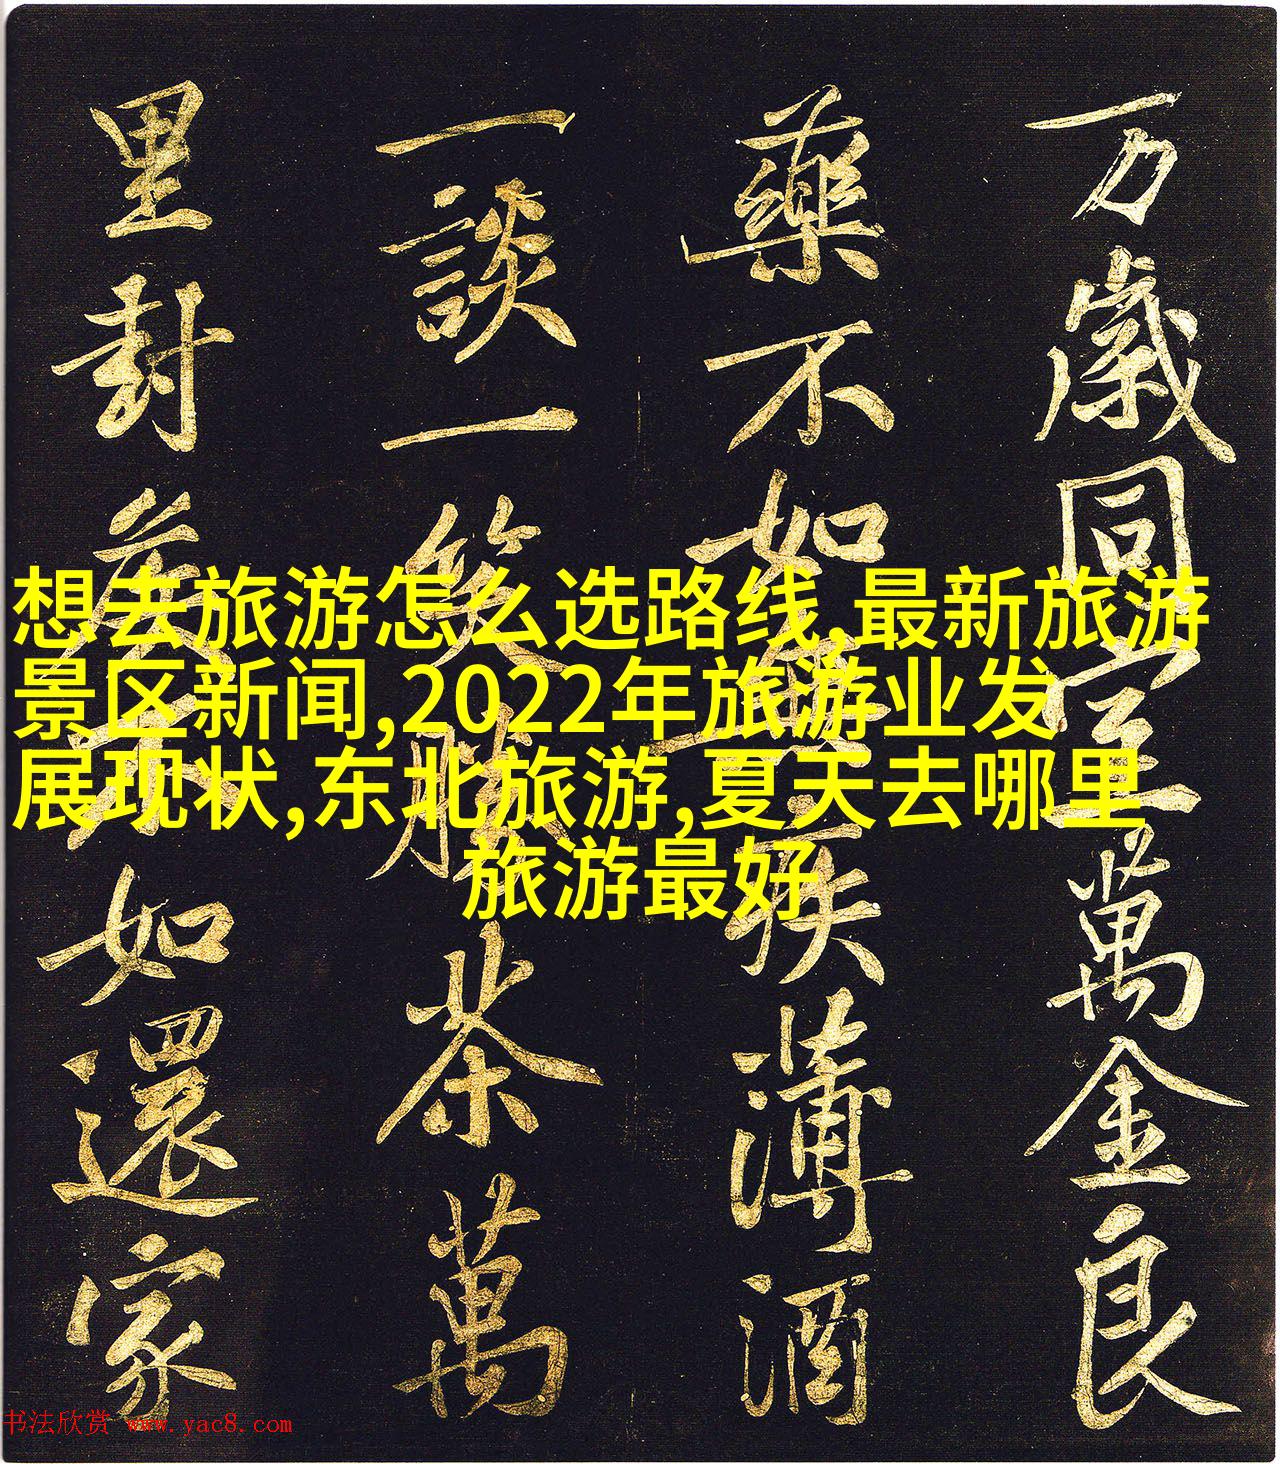 万歲同室萬金良
藥不如無疾薄酒
一談一笑勝茶萬
里封侯不如還家
想去旅游怎么选路线,最新旅游
景区新闻,2022年旅游业发
展现状,东北旅游,夏天去哪里
旅游最好
书法欣赏 www.yac8.com